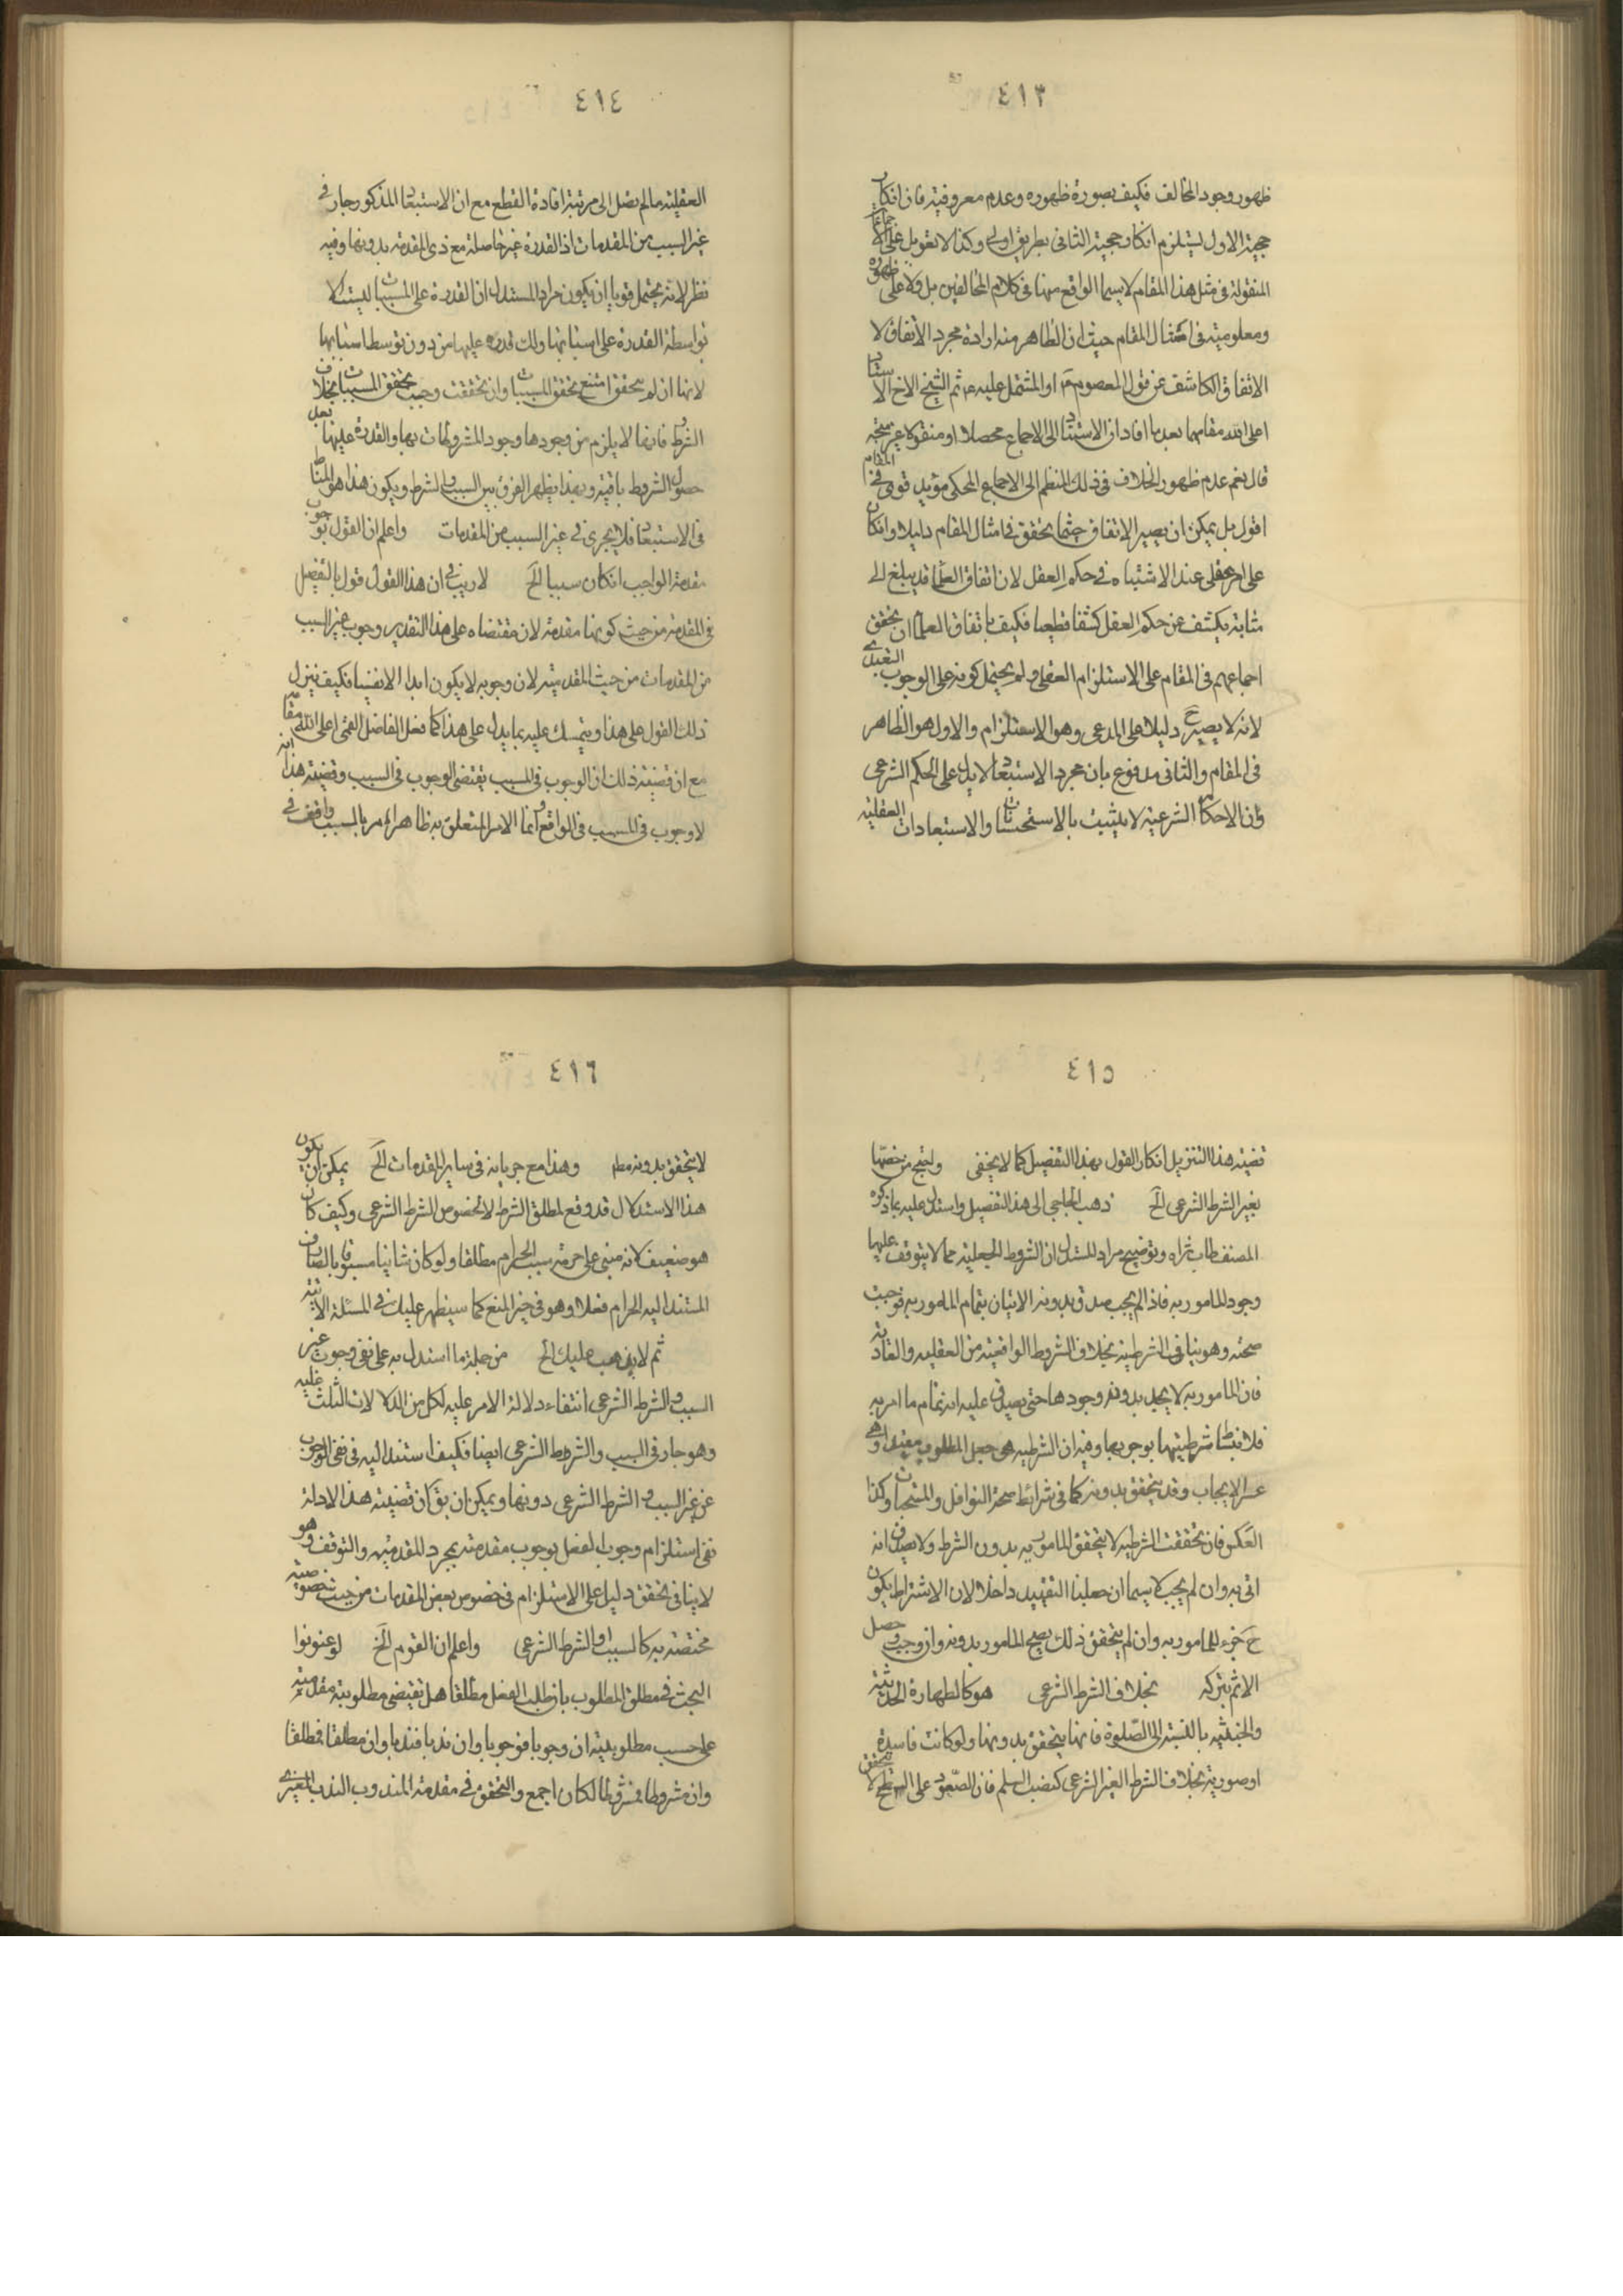 ٤١٣
ظهور وجود المخالف فكيف بصورة ظهوره وعدم معروفيته فان انكار
حجية الاول يستلزم انكار حجية الثاني بطريق اولى وكذا لا تعويل على الاجماعات
المنقولة في مثل هذا المقام لا سيما الواقع منها في كلام المخالفين بل ولا على ظهوره
ومعلوميته في امثال المقام حيث ان الظاهر منه ارادة مجرد الاتفاق لا
الاتفاق الكاشف عن قول المعصوم او المشتمل عليه ثم الشيخ الاخ الاستاد
اعلى الله مقامهما بعد ما افاد ان الاستناد الى الاجماع محصلا او منقولا غير متجه
قال نعم عدم ظهور الخلاف في ذلك المنظم الى الاجماع المحكي مؤيد قوي في المقام
اقول بل يمكن ان يصير الاتفاق حيثما تحقق في امثال المقام دليلا وانكان
على امر عقلي عند الاشتباه في حكم العقل لان اتفاق العلماء قد يبلغ الى
مثابة يكشف عن حكم العقل كشفا قطعيا فكيف باتفاق العلماء ان تحقق
اجماعهم في المقام على الاستلزام العقلي ولم يحتمل كونه على الوجوب التعبدي
لانه لا يصير ح دليلا على المدعى وهو الاستلزام والاول هو الظاهر
في المقام والثاني مدفوع بان مجرد الاستبعاد لا يدل على الحكم الشرعي
فان الاحكام الشرعية لا يثبت بالاستحسانات والاستبعادات العقلية
٤١٤
العقلية ما لم يصل الى مرتبة افادة القطع مع ان الاستبعاد المذكور جار في
غير السبب من المقدمات اذ القدرة غير حاصلة مع ذي المقدمة بدونها وفيه
نظر لانه يحتمل قويا ان يكون مراد المستدل ان القدرة على المسببات ليست الا
بواسطة القدرة على اسبابها ولا قدرة عليها من دون توسط اسبابها
لانها ان لم يتحقق امتنع تحقق المسببات وان تحققت وجب تحقق المسببات بخلاف
الشرط فانها لا يلزم من وجودها وجود المشروطات بها والقدرة عليها بعد
حصول الشروط باقية وبهذا يظهر الفرق بين السبب والشرط ويكون هذا هو المناط
في الاستبعاد فلا يجرى في غير السبب من المقدمات واعلم ان القول بوجوب
مقدمة الواجب انكان سببا الخ لا ريب في ان هذا القول قول بالتفصيل
في المقدمة من حيث كونها مقدمة لان مقتضاه على هذا التقدير وجوب غير السبب
من المقدمات من حيث المقدمية لان وجوبه لا يكون ابدا الا نفسيا فكيف ينزل
ذلك القول على هذا ويتمسك عليه بما يدل على هذا كما فعل الفاضل القمي اعلى الله مقامه
مع ان قضية ذلك ان الوجوب في المسبب يقتضى الوجوب في السبب وقضية هذا انه
لا وجوب في المسبب في الواقع وانما الامر المتعلق به ظاهرا امر بالسبب واقعا في
٤١٥
قضية هذا التنزيل انكار القول بهذا التفصيل كما لا يخفى ولنحتج من خصها
بغير الشرط الشرعي الخ ذهب الحاجبي الى هذا التفصيل واستدل عليه بما ذكره
المصنف طاب ثراه وتوضيح مراد المستدل ان الشروط الجعلية مما لا يتوقف عليها
وجود المامور به فاذا لم يجب صدق بدونه الاتيان بتمام المامور به فوجبت
صحته وهو ينافي الشرطية بخلاف الشروط الواقعية من العقلية والعادية
فان المامور به لا يحل بدونه وجودها حتى يصدق عليه انه تمام ما امر به
فلا نيط شرطيتها بوجوبها وفيه ان الشرطية هي جعل المطلوب مقيدا وهي
غير الايجاب وقد يتحقق بدونه كما في شرائط صحة النوافل والمستحبات وكذا
العكس فان تحققت الشرطية لا يتحقق المامور به بدون الشرط ولا يصدق انه
اتى به وان لم يجب لا سيما ان جعلنا التقييد داخلا لان الاشتراط يكون
ح جزء للمامور به وان لم يتحقق ذلك يصح المامور بدونه وان وجب وحصل
الاثم بتركه بخلاف الشرط الشرعي هو كالطهارة الحدثية
والخبثية بالنسبة الى الصلوة فانها يتحقق بدونها ولو كانت فاسدة
او صورية بخلاف الشرط الغير الشرعي كنصب السلم فان الصعود على السطح لا يتحقق
٤١٦
لا يتحقق بدونه مطم وهذا مع جريانه في سائر المقدمات الخ يمكن ان يكون
هذا الاستدلال قد وقع لمطلق الشرط لا لخصوص الشرط الشرعي وكيف كان
هو ضعيف لانه مبني على حرمة سبب الحرام مطلقا ولو كان ثانيا مسبوقا بالصارف
المستند اليه الحرام فعلا وهو في حيز المنع كما سيظهر عليك في المسئلة الاتية
ثم لا يذهب عليك الخ من جملة ما استدل به على نفى وجوب غير
السبب والشرط الشرعي انتفاء دلالة الامر عليه لكل من الدلالات الثلث عليه
وهو جار في السبب والشروط الشرعي ايضا فكيف استند اليه في نفى الوجوب
عن غير السبب والشرط الشرعي دونها ويمكن ان يق ان قضية هذا الادلة
نفى استلزام وجوب الفعل لوجوب مقدمته بمجرد المقدمية والتوقف وهو
لا ينافي تحقق دليل على الاستلزام في خصوص بعض المقدمات من حيث خصوصيته
مختصة به كالسبب او الشرط الشرعي واعلم ان القوم الخ لو عنونوا
البحث في مطلق المطلوب بان طلب الفعل مطلقا هل يقتضى مطلوبية مقدمته
على حسب مطلوبيته ان وجوبا فوجوبا وان ندبا فندبا وان مطلقا فمطلقا
وان مشروطا فمشروطا لكان اجمع والتحقق في مقدمة المندوب الندب الغيري